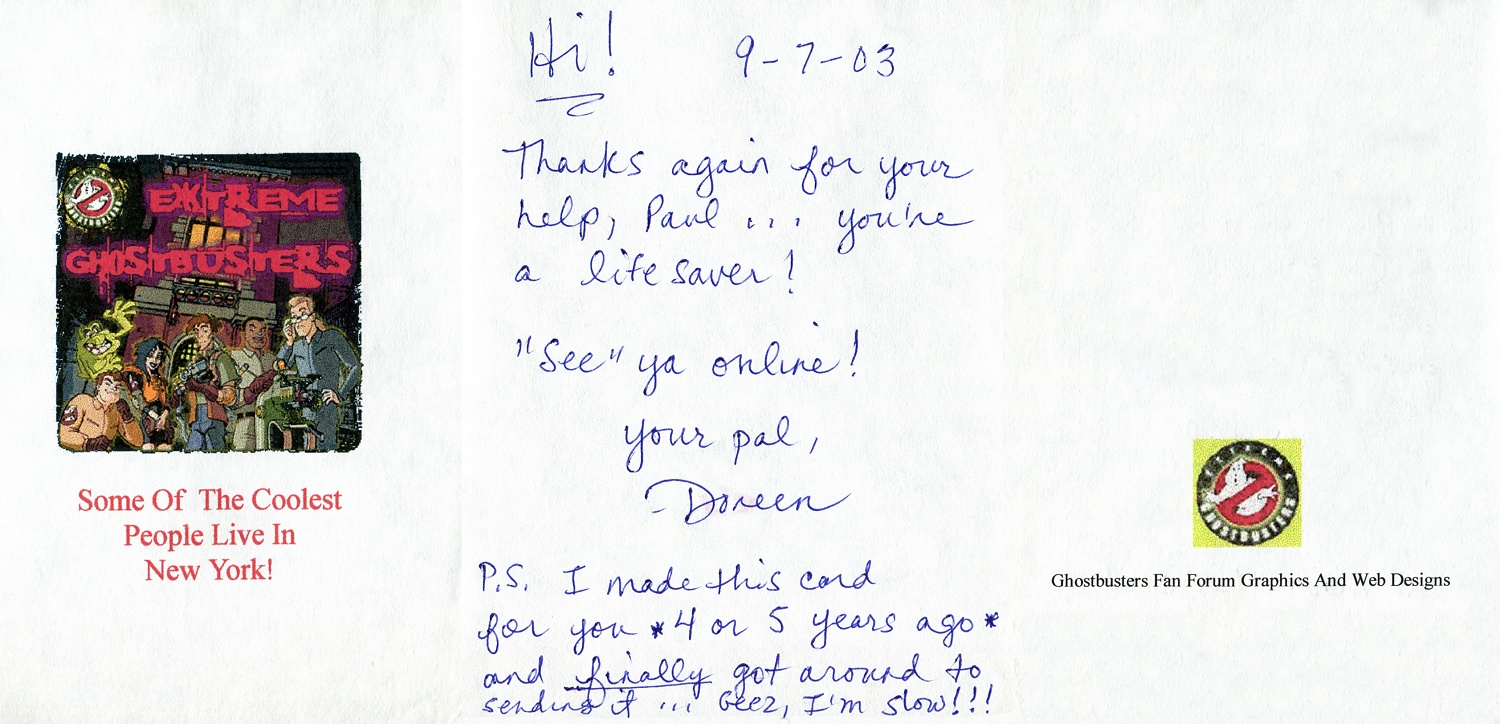 EXTREME
GHOSTBUSTERS
Some Of The Coolest
People Live In
New York!
Hi! 9-7-03
Thanks again for your
help, Paul ... you're
a life saver!
"See" ya online!
Your pal,
-Doreen
P.S. I made this card
for you *4 or 5 years ago*
and finally got around to
sending it ... Geez, I'm slow!!!
EXTREME
GHOSTBUSTERS
Ghostbusters Fan Forum Graphics And Web Designs